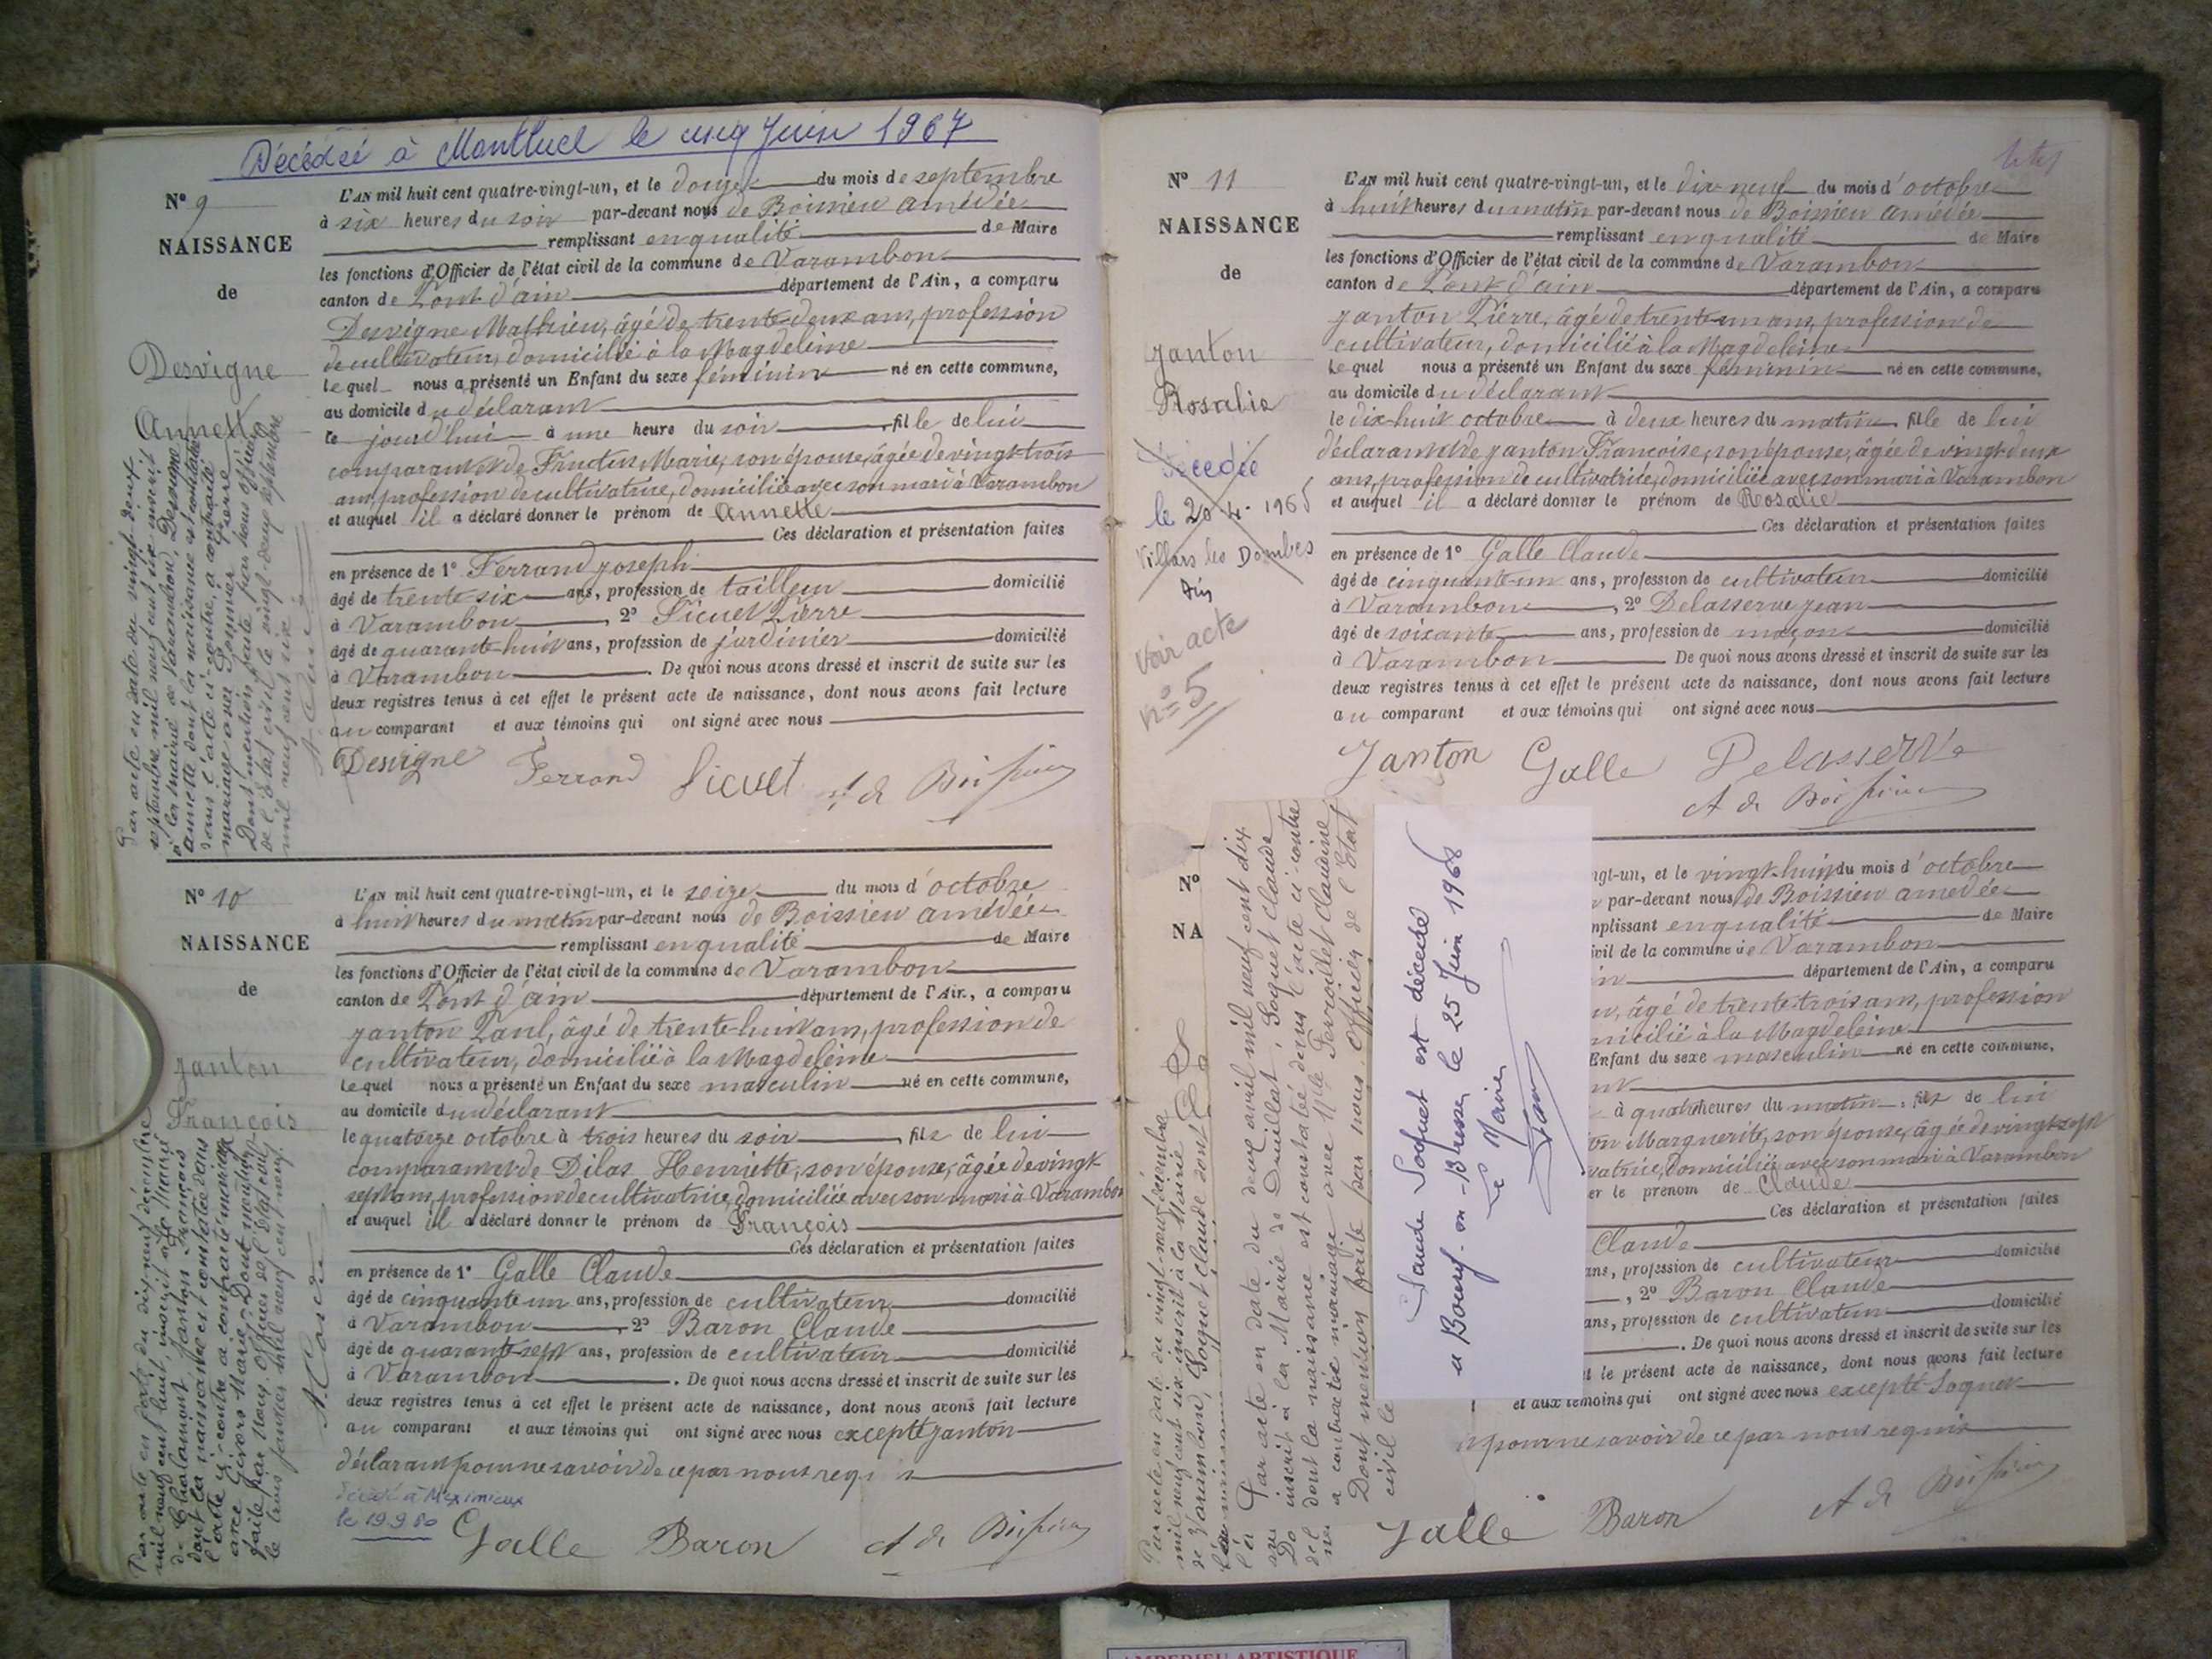 Décédée à Montluel le cinq Juin 1967
N° 9
NAISSANCE
de
Desvigne
Annette
L'AN mil huit cent quatre-vingt-un, et le douze du mois de septembre
à six heures du soir par-devant nous de Boissieu amédée
remplissant en qualité de Maire
les fonctions d'Officier de l'état civil de la commune de Varambon
canton de Pont d'ain département de l'Ain, a comparu
Desvigne Mathieu, âgé de trente-deux ans, profession
de cultivateur, domicilié à la Magdeleine
lequel nous a présenté un Enfant du sexe féminin né en cette commune,
au domicile du déclarant
le jourd'hui à une heure du soir, fille de lui
comparant et de Marie, son épouse, âgée de vingt-trois
ans, profession de cultivatrice, domiciliée avec son mari à Varambon
et auquel il a déclaré donner le prénom de Annette
Ces déclaration et présentation faites
en présence de 1° Ferrand joseph
âgé de trente six ans, profession de tailleur domicilié
à Varambon, 2° Sicuet Pierre
âgé de quarante-huit ans, profession de jardinier domicilié
à Varambon. De quoi nous avons dressé et inscrit de suite sur les
deux registres tenus à cet effet le présent acte de naissance, dont nous avons fait lecture
au comparant et aux témoins qui ont signé avec nous
Desvigne Ferrand Sicuet A de Boissieu
Par acte en date du vingt-deux
septembre mil neuf cent six inscrit
à la mairie de Varambon, Desvigne
annette dont la naissance est constatée
dans l'acte ci-contre, a contracté
mariage avec Pierre
Dont mention faite par nous officier
de l'état civil le vingt-deux septembre
mil neuf cent six
N° 10
NAISSANCE
de
janton
François
L'AN mil huit cent quatre-vingt-un, et le seize du mois d'octobre
à huit heures du matin par-devant nous de Boissieu amédée
remplissant en qualité de Maire
les fonctions d'Officier de l'état civil de la commune de Varambon
canton de Pont d'ain département de l'Ain, a comparu
janton Paul, âgé de trente-huit ans, profession de
cultivateur, domicilié à la Magdeleine
lequel nous a présenté un Enfant du sexe masculin né en cette commune,
au domicile du déclarant
le quatorze octobre à trois heures du soir, fils de lui
comparant et de Dilas Henriette, son épouse, âgée de vingt-
sept ans, profession de cultivatrice, domiciliée avec son mari à Varambon
et auquel il a déclaré donner le prénom de François
Ces déclaration et présentation faites
en présence de 1° Galle Claude
âgé de cinquante un ans, profession de cultivateur domicilié
à Varambon, 2° Baron Claude
âgé de quarante-sept ans, profession de cultivateur domicilié
à Varambon. De quoi nous avons dressé et inscrit de suite sur les
deux registres tenus à cet effet le présent acte de naissance, dont nous avons fait lecture
au comparant et aux témoins qui ont signé avec nous excepté janton
déclarant pour ne savoir de ce par nous requis
décédé à Meximieux
le 19.9.60
Galle Baron A de Boissieu
Par acte en date du dix neuf décembre
mil neuf cent huit, inscrit à la Mairie
de Chalamont Janton François
dont la naissance est constatée dans
l'acte ci-contre a contracté mariage
avec Givors Marie. Dont mention
faite par Nous Officier de l'état civil
le trois janvier mil neuf cent neuf.
N° 11
NAISSANCE
de
janton
Rosalie
Décédée
le 20-4-1965
Villars les Dombes
Ain
voir acte
n° 5
L'AN mil huit cent quatre-vingt-un, et le dix neuf du mois d'octobre
à huit heures du matin par-devant nous de Boissieu amédée
remplissant en qualité de Maire
les fonctions d'Officier de l'état civil de la commune de Varambon
canton de Pont d'ain département de l'Ain, a comparu
janton Pierre, âgé de trente-un ans, profession de
cultivateur, domicilié à la Magdeleine
lequel nous a présenté un Enfant du sexe féminin né en cette commune,
au domicile du déclarant
le dix-huit octobre à deux heures du matin, fille de lui
déclarant et de janton Françoise, son épouse, âgée de vingt-deux
ans, profession de cultivatrice, domiciliée avec son mari à Varambon
et auquel il a déclaré donner le prénom de Rosalie
Ces déclaration et présentation faites
en présence de 1° Galle Claude
âgé de cinquante un ans, profession de cultivateur domicilié
à Varambon, 2° Delasserve jean
âgé de soixante ans, profession de maçon domicilié
à Varambon De quoi nous avons dressé et inscrit de suite sur les
deux registres tenus à cet effet le présent acte de naissance, dont nous avons fait lecture
au comparant et aux témoins qui ont signé avec nous
Janton Galle Delasserve
A de Boissieu
N°
NA
Par acte en date du vingt-neuf décembre
mil neuf cent six inscrit à la Mairie
de Varambon, Soquet Claude dont
Par acte en date du deux avril mil neuf cent dix
inscrit à la Mairie de Druillat, Soquet Claude
dont la naissance est constatée dans l'acte ci-contre
a contracté mariage avec Mlle Perraillet Claudine
Dont mention faite par nous Officier de l'Etat
civil le
Claude Soquet est décédé
à Bourg-en-Bresse, le 25 Juin 1968
Le Maire
ngt-un, et le vingt-huit du mois d'octobre
par-devant nous de Boissieu amédée
mplissant en qualité de Maire
ivil de la commune de Varambon
in département de l'Ain, a comparu
, âgé de trente-trois ans, profession
micilié à la Magdeleine
Enfant du sexe masculin né en cette commune,
nt
à quatre heures du matin, fils de lui
on Marguerite, son épouse, âgée de vingt-sept
vatrice, domiciliée avec son mari à Varambon
er le prénom de Claude
Ces déclaration et présentation faites
Claude
ans, profession de cultivateur domicilié
, 2° Baron Claude
ans, profession de cultivateur domicilié
. De quoi nous avons dressé et inscrit de suite sur les
t le présent acte de naissance, dont nous avons fait lecture
et aux témoins qui ont signé avec nous excepté Soquet
pour ne savoir de ce par nous requis
Galle Baron A de Boissieu
AMPERIEU ARTISTIQUE